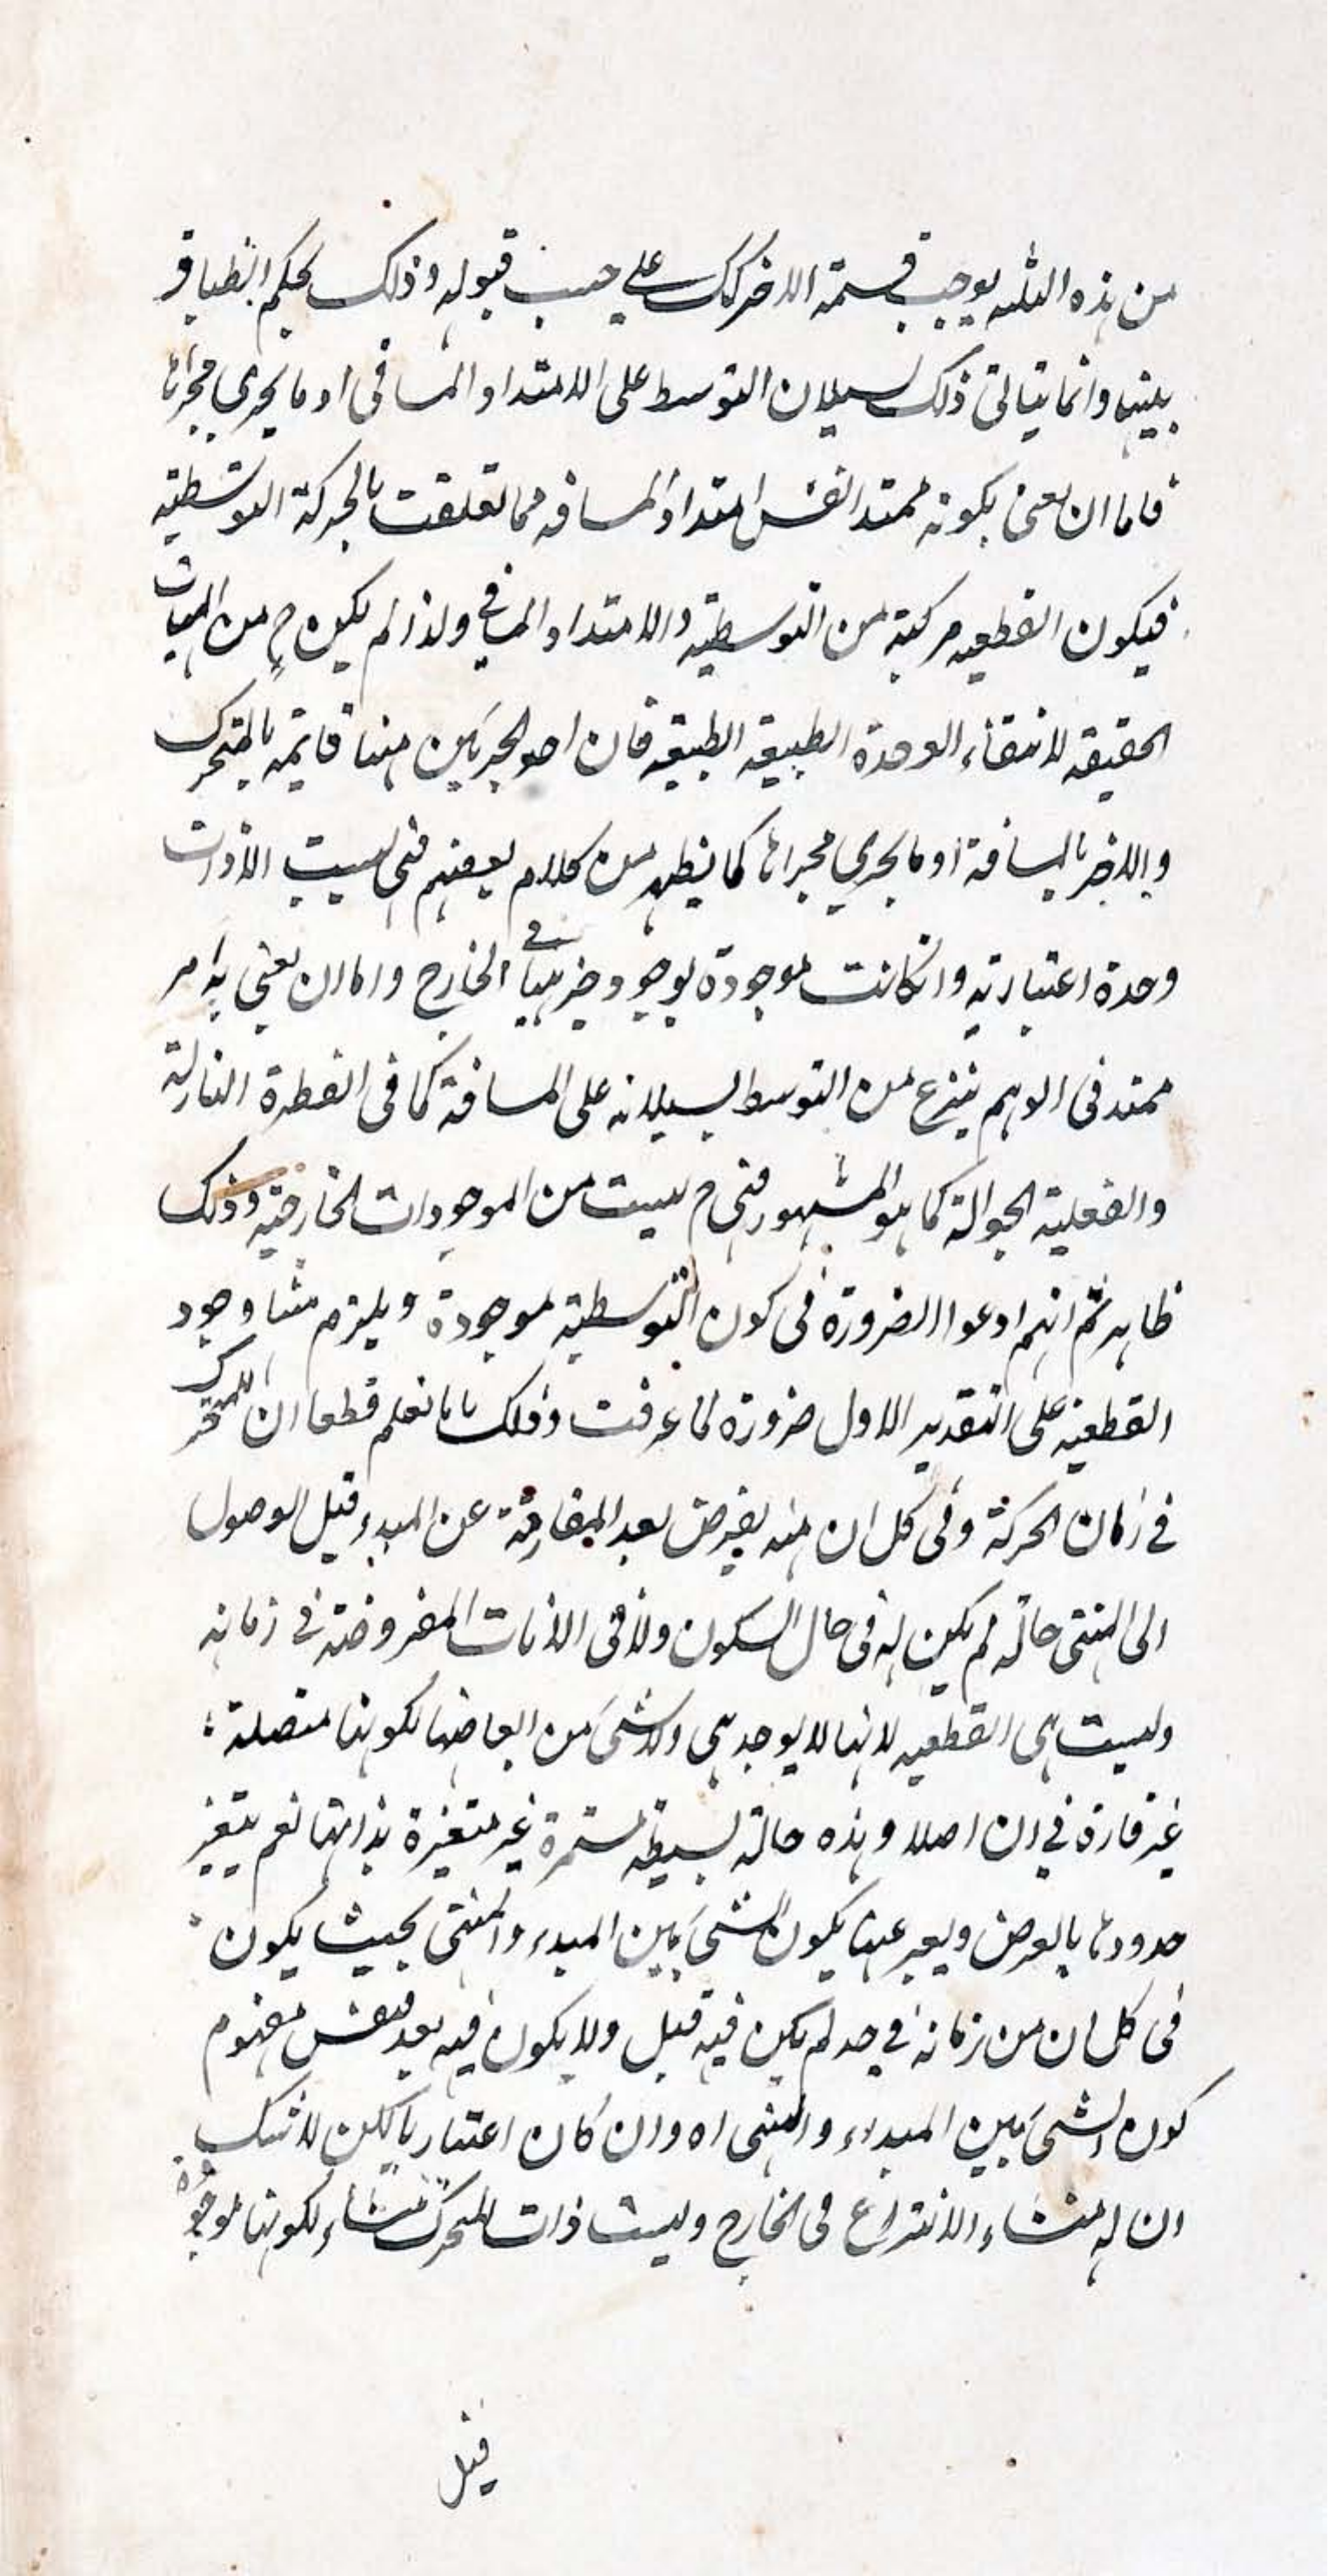 من هذه الثلثه يوجب قسمة الاخر كك على حسب قبوله وذلك بحكم انطباق
بينها وانما يتاتى ذلك لسيلان التوسط على الامتداد المسافى او ما يجرى مجراها
فاما ان يعنى بكونه ممتدا نفس امتداد المسافه مما تعلقت بالحركة التوسطية
فيكون القطعيه مركبة من التوسطية والامتداد المسافى ولذا لم يكن ح من المهيات
الحقيقه لانتفاء الوحدة الطبيعه الطبيعه فان احد الجزئين منها قايمه بالمتحرك
والاخر بالمسافة او ما يجرى مجراها كما يظهر من كلام بعضهم فهى ليست الا ذات
وحدة اعتباريه وانكانت موجودة بوجود جزئيها فى الخارج واما ان يعنى به امر
ممتد فى الوهم ينزع من التوسط لسيلانه على المسافة كما فى القطرة النازلة
والشعلة الجوالة كما هو المشهور فهى ح ليست من الموجودات الخارجية وذلك
ظاهر ثم انهم ادعوا الضرورة فى كون التوسطية موجودة ويلزم منها وجود
القطعية على التقدير الاول ضرورة لما عرفت وذلك بانا نعلم قطعا ان للمتحرك
فى زمان الحركة وفى كل ان منه يفرض بعد المفارقة عن المبدء قبل الوصول
الى المنتهى حالة لم يكن له فى حال السكون ولا فى الانات المفروضة فى زمانه
وليست هى القطعيه لانها لا يوجد هى ولا شىء من ابعاضها لكونها متصلة
غير قارة فى ان اصلا وهذه حالة بسيطة مستمرة غير متغيرة بذاتها نعم يتغير
حدودها بالعرض ويعبر عنها بكون الشىء بين المبدء والمنتهى بحيث يكون
فى كل ان من زمانه فى حد لم يكن فيه قبل ولا يكون فيه بعد فنفس مفهوم
كون الشىء بين المبداء والمنتهى اه وان كان اعتباريا لكن لا شك
ان له منشاء الانتزاع فى الخارج وليست ذات المتحرك منشاء لكونها موجودة
قبل